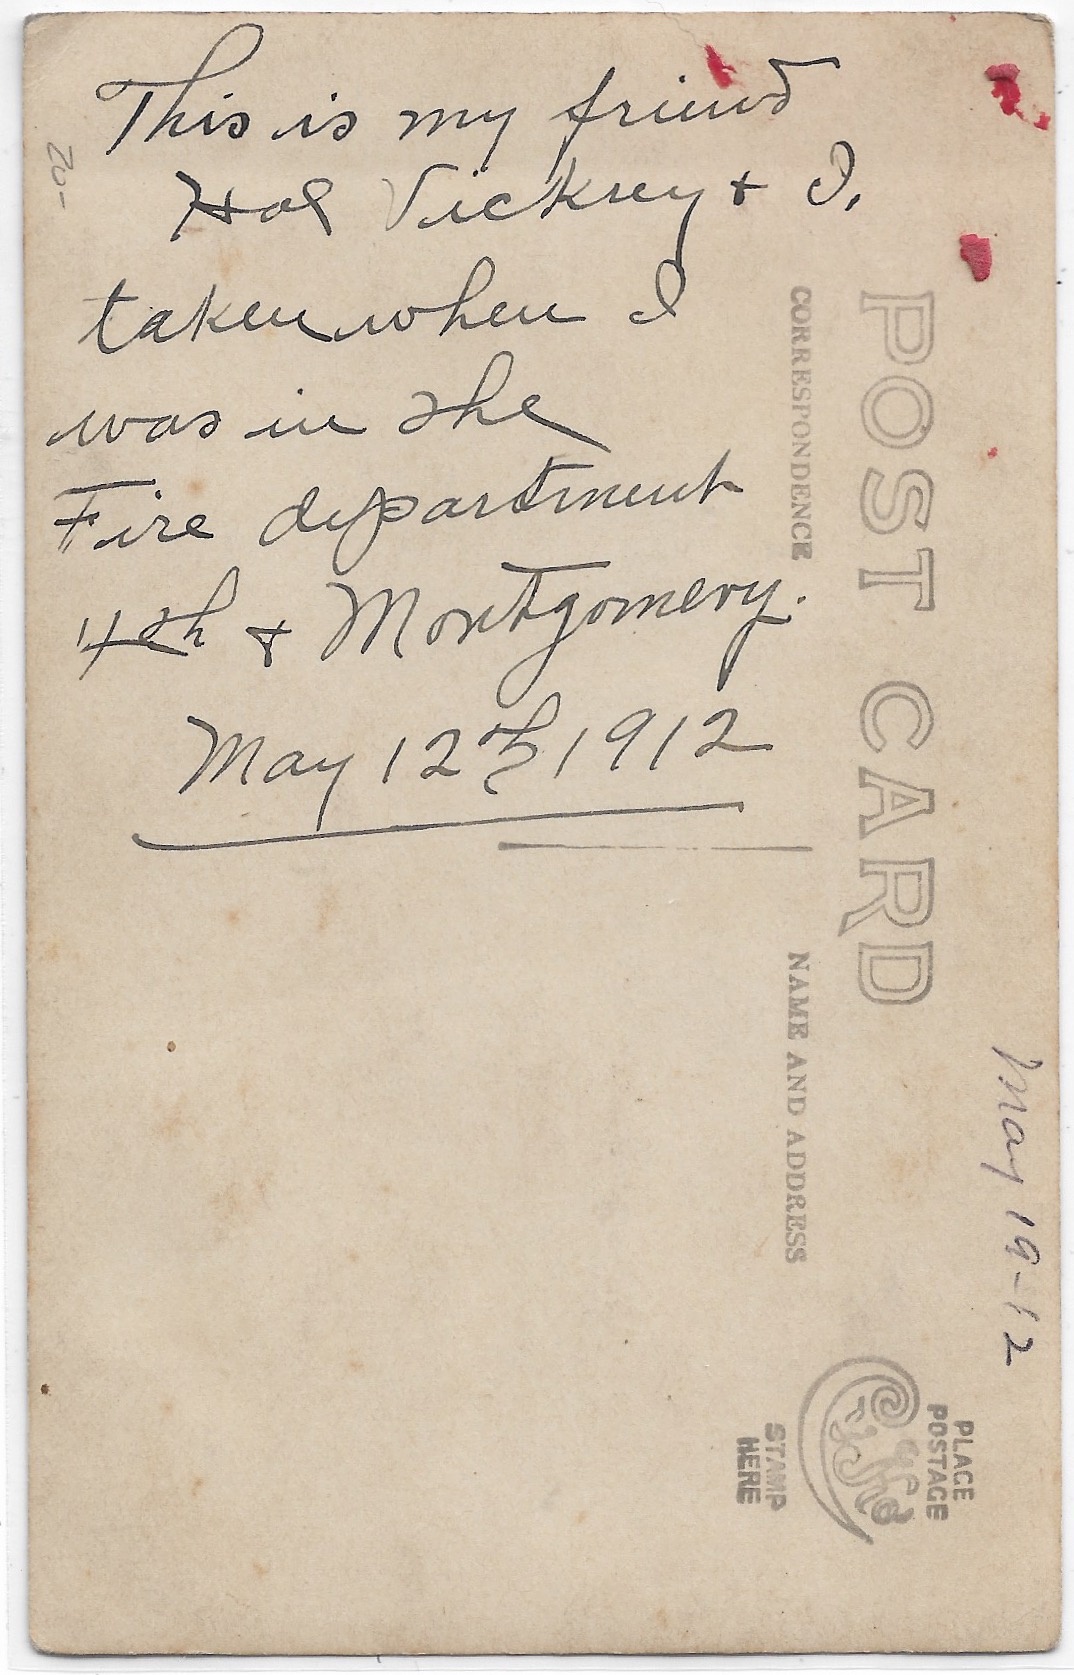 This is my friend
Hal Vickrey & I.
taken when I
was in the
Fire department
4th & Montgomery.
May 12th 1912
20-
POST CARD
CORRESPONDENCE
NAME AND ADDRESS
May 19-12
PLACE
POSTAGE
STAMP
HERE